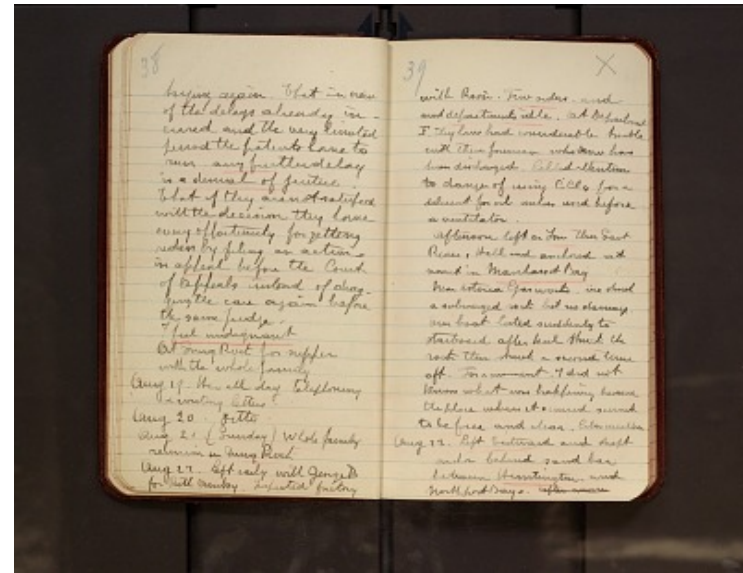 38
again. That in view
of the delays already in-
curred and the very limited
period the patents have to
run any further delay
is a denial of justice.
That if they are not satisfied
with the decision they have
every opportunity for getting
redress by filing an action
in appeal before the Court
of Appeals instead of drag-
ging the case again before
the same judge.
I feel indignant
At Snug Rock for supper
with the whole family
Aug 19. all day telephoning
writing letters
Aug 20. Ditto
Aug 21 (Sunday) Whole family
reunion in Snug Rock
Aug 22. Left early with George
for factory
39
X
with Rossi. Few orders and
most departments idle. At Department
F. Taylor had considerable trouble
with their foreman who since has
been discharged. Called attention
to danger of using CCl4 for a
solvent for oil unless used before
a ventilator.
Afternoon left on Ion thru East
River, Hell and anchored
in Manhasset Bay
Near Astoria Gasworks we struck
a submerged rock but no damage
our boat listed suddenly to
starboard after keel struck the
rock then struck a second time
aft. For a moment I did not
know what was happening
the place where it seemed
to be free and clear.
Left Eastward and slept
behind sand bar
between Huntington and
Northport Bays.